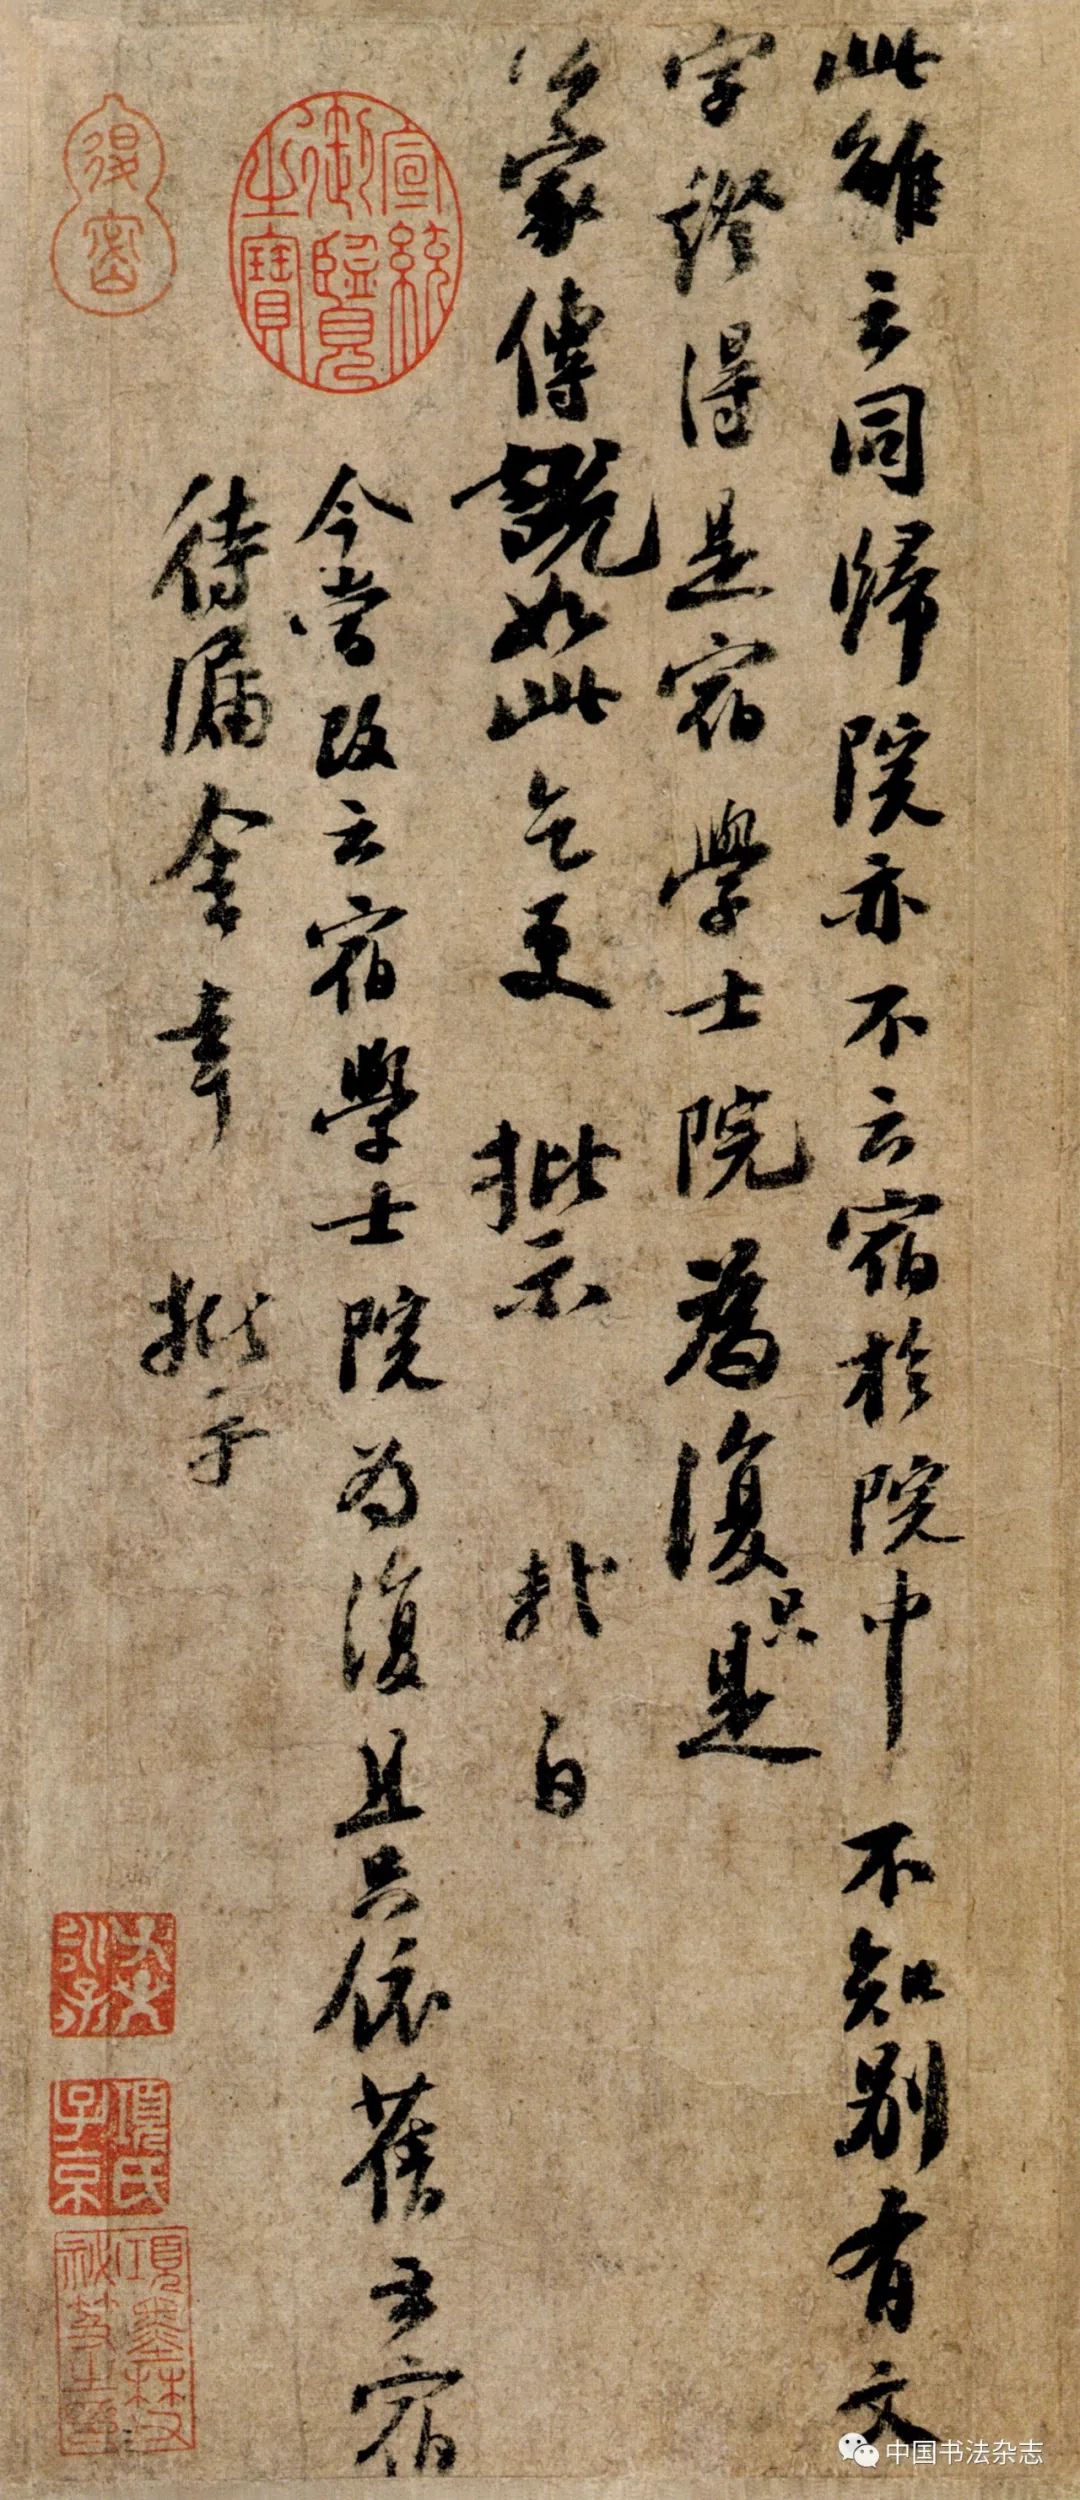 此雖云同歸院亦不云宿於院中不知別有文
字證得是宿學士院為復只是
家傳說如此乞更批示 軾白
今嘗改云宿學士院為復且只依舊云宿
待漏舍幸批示
宣統御覽之寶
項氏子京
中国书法杂志